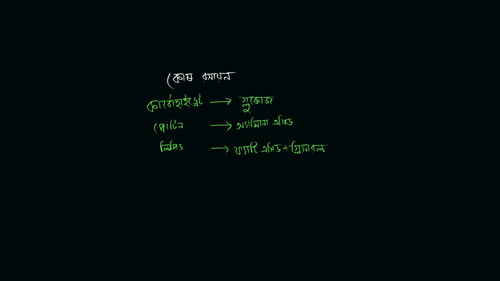 কোষ রসায়ন
কার্বোহাইড্রেট → গ্লুকোজ
প্রোটিন → অ্যামিনো এসিড
লিপিড → ফ্যাটি এসিড + গ্লিসারল